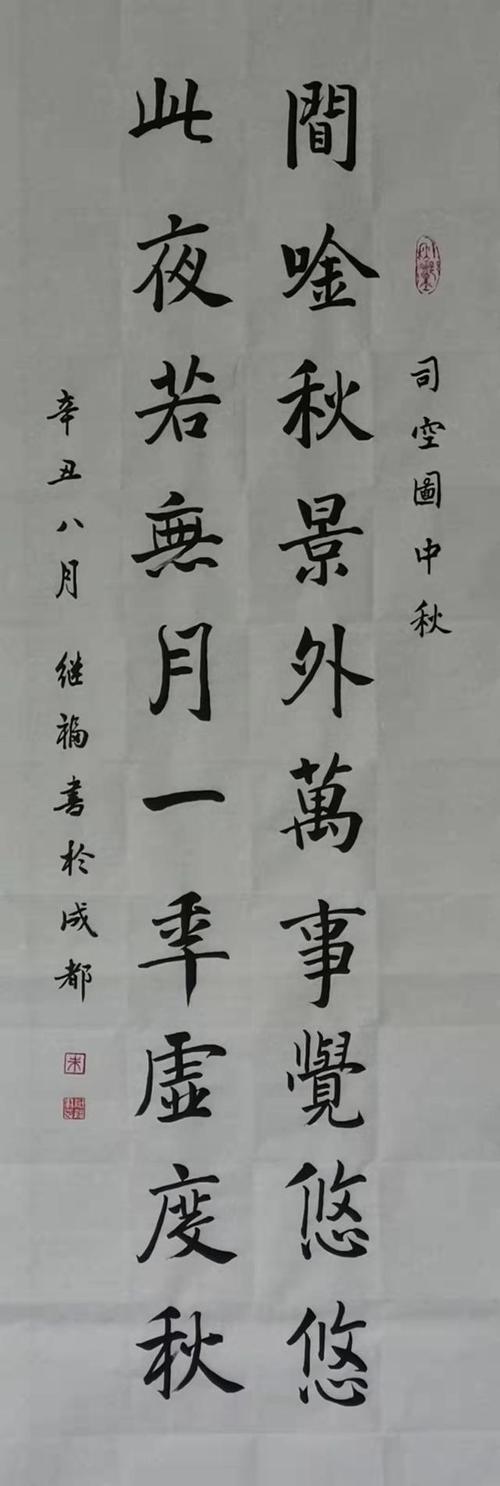 司空圖中秋
閒唫秋景外萬事覺悠悠
此夜若無月一年虛度秋
辛丑八月 继福書於成都
朱